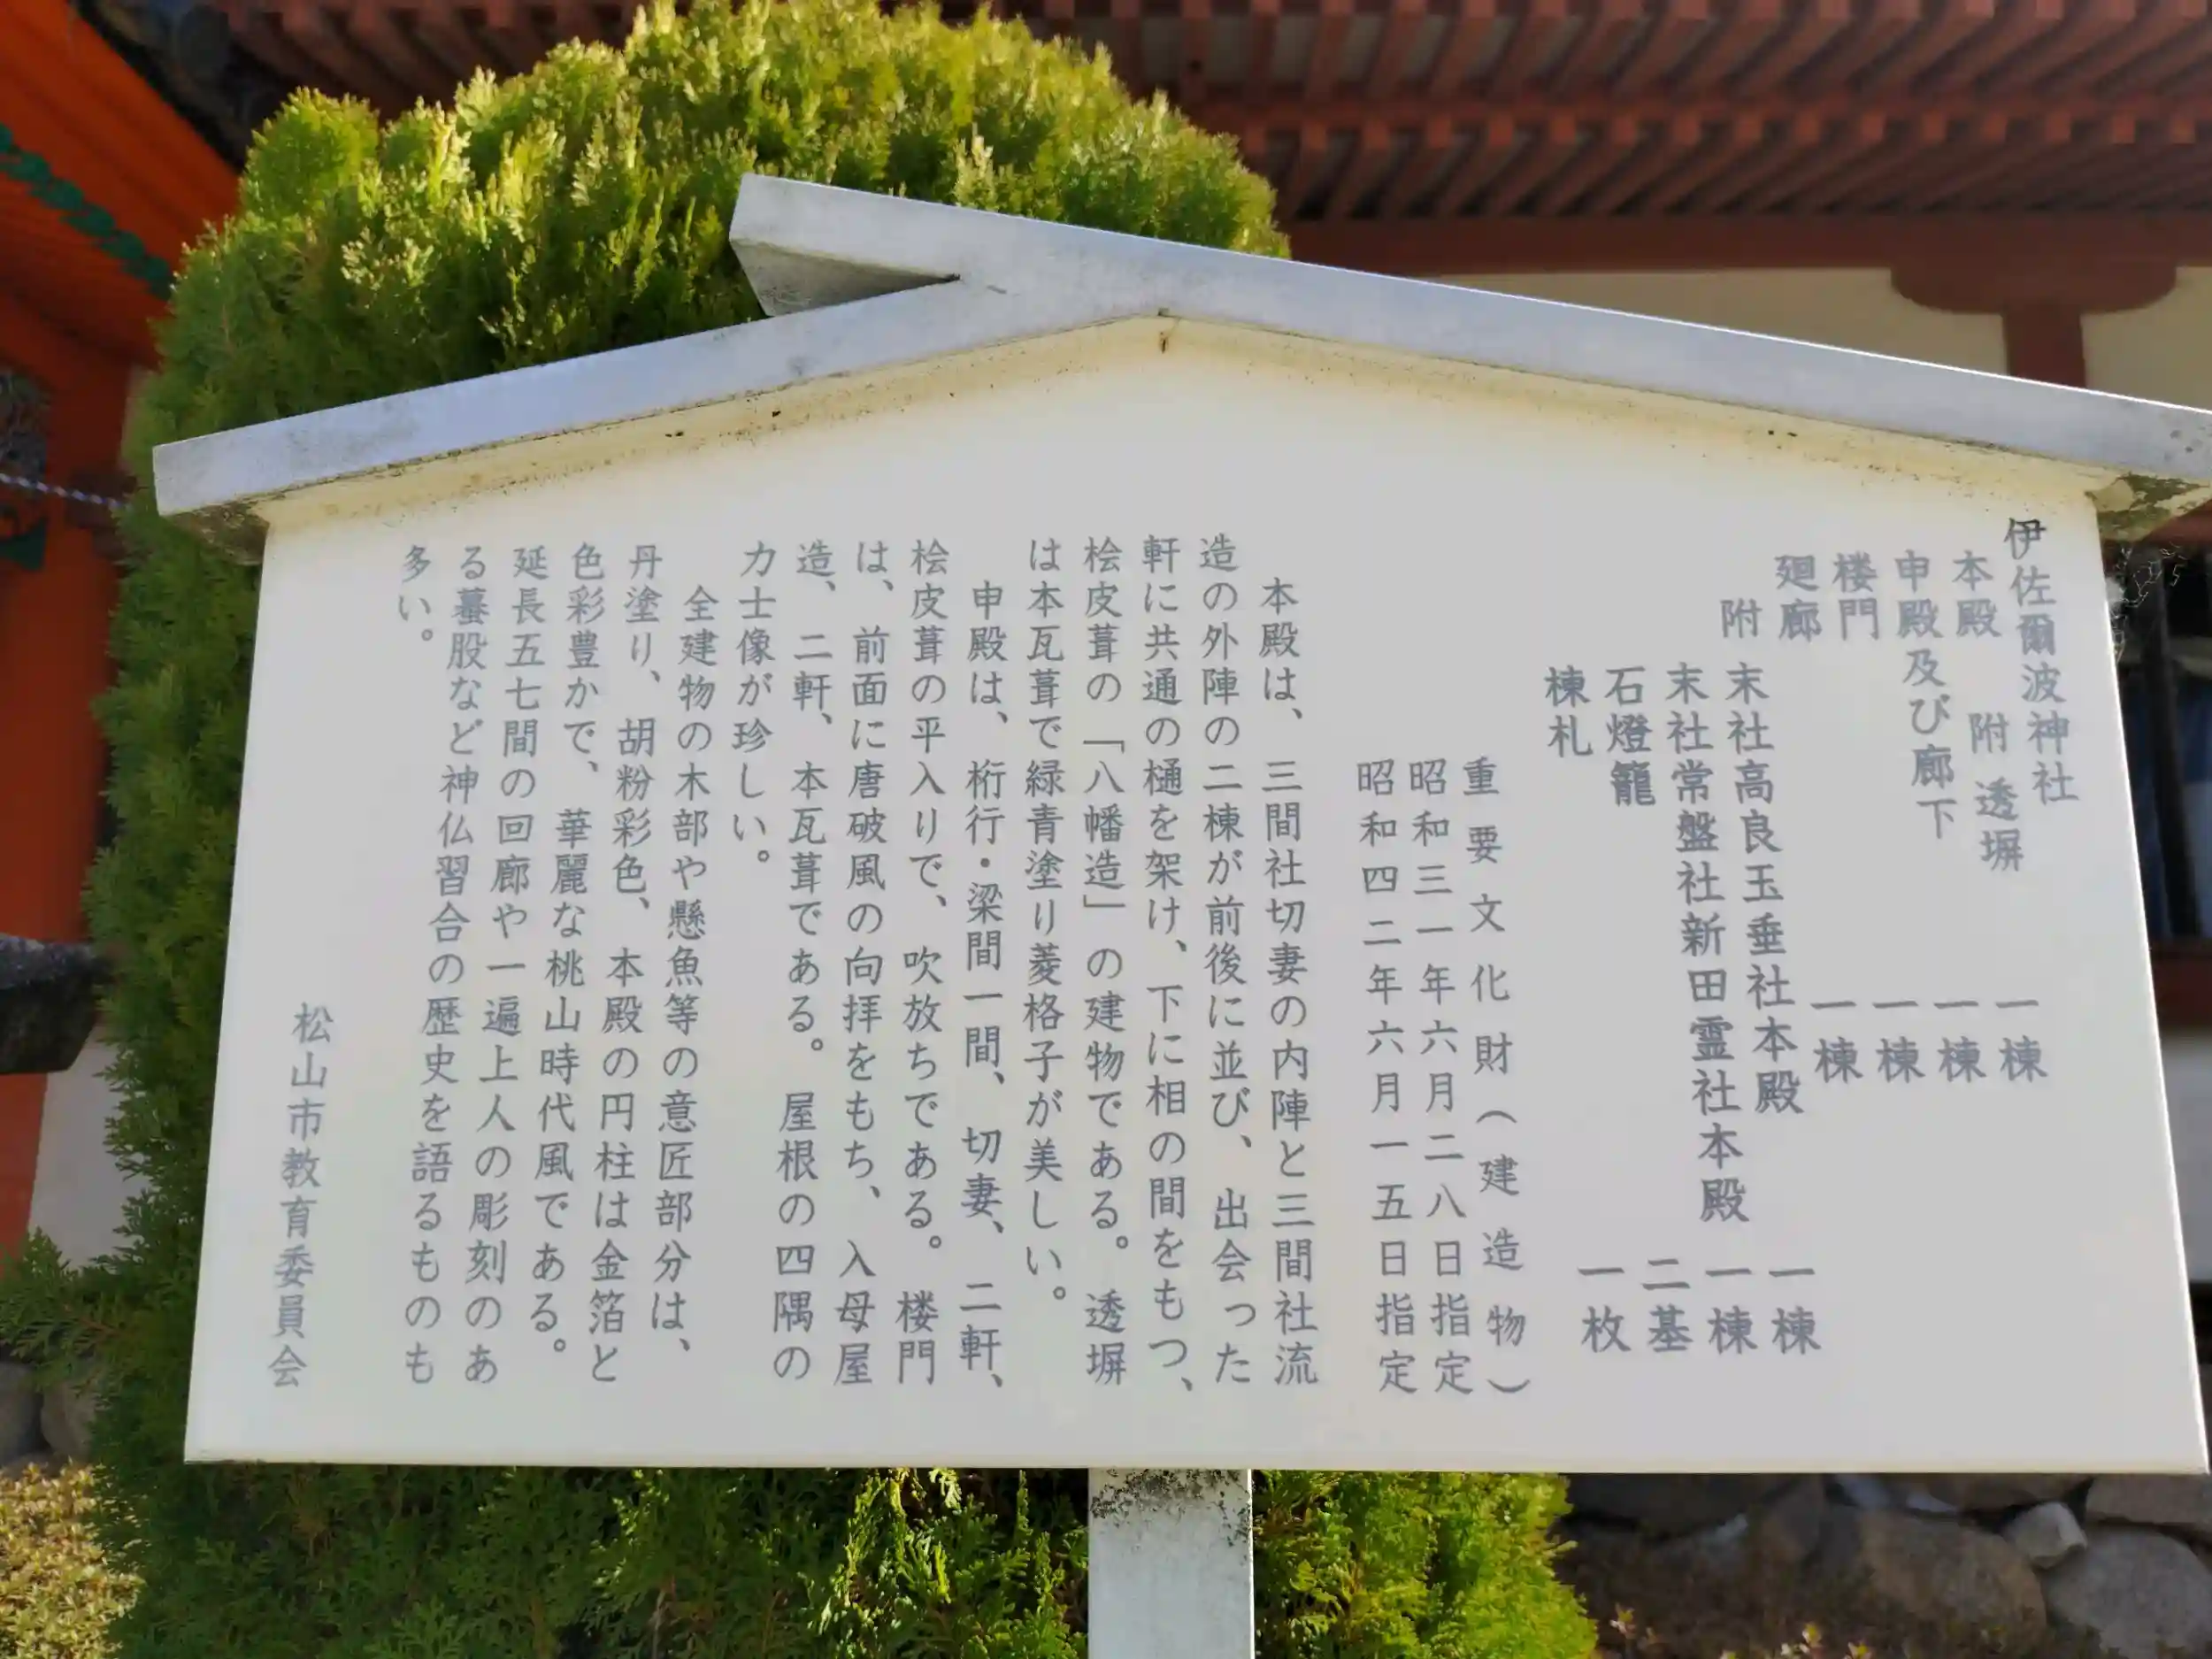 伊佐爾波神社
本殿　附 透塀　一棟
申殿及び廊下　一棟
楼門　一棟
廻廊　一棟
附　末社高良玉垂社本殿　一棟
末社常盤社新田霊社本殿　一棟
石燈籠　二基
棟札　一枚
重要文化財(建造物)
昭和三一年六月二八日指定
昭和四二年六月一五日指定
本殿は、三間社切妻の内陣と三間社流
造の外陣の二棟が前後に並び、出会った
軒に共通の樋を架け、下に相の間をもつ、
桧皮葺の「八幡造」の建物である。透塀
は本瓦葺で緑青塗り菱格子が美しい。
申殿は、桁行・梁間一間、切妻、二軒、
桧皮葺の平入りで、吹放ちである。楼門
は、前面に唐破風の向拝をもち、入母屋
造、二軒、本瓦葺である。屋根の四隅の
力士像が珍しい。
全建物の木部や懸魚等の意匠部分は、
丹塗り、胡粉彩色、本殿の円柱は金箔と
色彩豊かで、華麗な桃山時代風である。
延長五七間の回廊や一遍上人の彫刻のあ
る蟇股など神仏習合の歴史を語るものも
多い。
松山市教育委員会